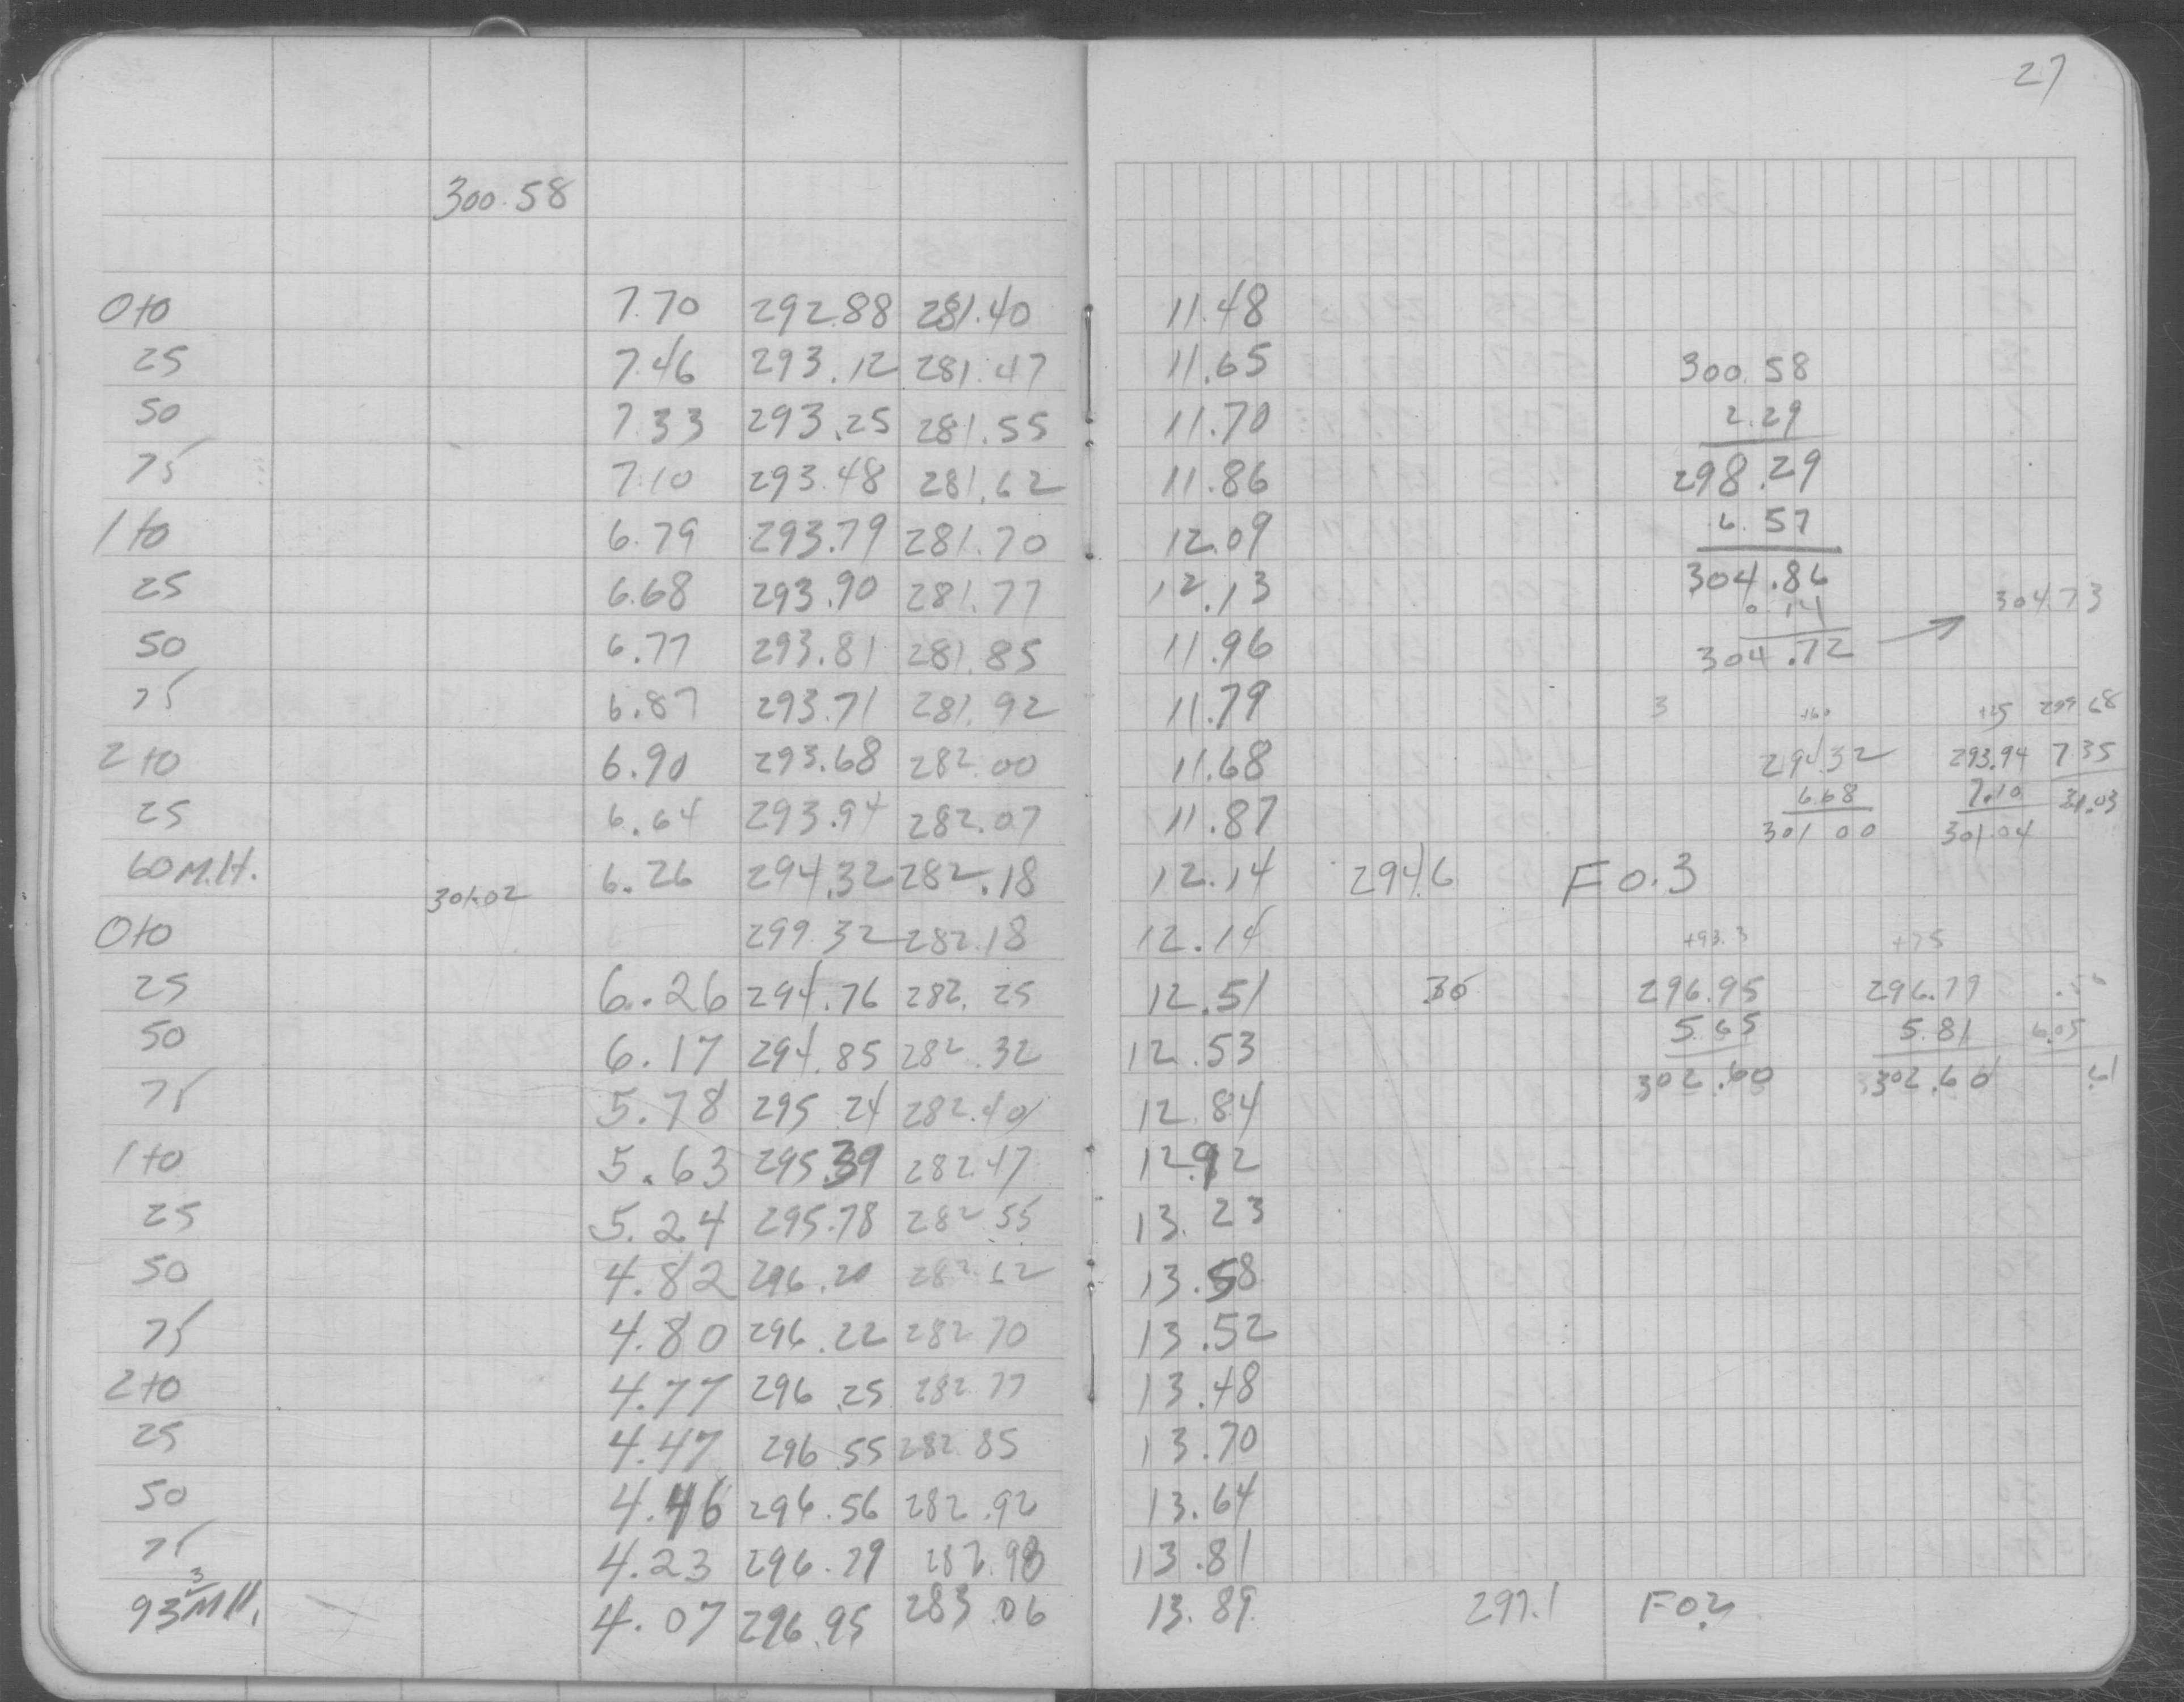 27
300.58
0+0 7.70 292.88 281.40 11.48
25 7.46 293.12 281.47 11.65 300.58
50 7.33 293.25 281.55 11.70 2.29
75 7.10 293.48 281.62 11.86 298.29
1+0 6.79 293.79 281.70 12.09 6.57
25 6.68 293.90 281.77 12.13 304.86 304.73
0.14
50 6.77 293.81 281.85 11.96 304.72
75 6.87 293.71 281.92 11.79 3 +60 +25 299.68
2+0 6.90 293.68 282.00 11.68 294.32 293.94 7.35
25 6.64 293.94 282.07 11.87 6.68 7.10 31.03
301 00 301.04
60 M.H. 6.26 294.32 282.18 12.14 294.6 F0.3
301.02
0+0 299.32 282.18 12.14 +93.3 +75
25 6.26 294.76 282.25 12.51 .30 296.95 296.79
50 6.17 294.85 282.32 12.53 5.65 5.81 6.05
75 5.78 295 24 282.40 12.84 302.60 302.60 .61
1+0 5.63 295.39 282.47 12.92
25 5.24 295.78 282 55 13.23
50 4.82 296.20 282.62 13.58
75 4.80 296.22 282 70 13.52
2+0 4.77 296 25 282 77 13.48
25 4.47 296 55 282 85 13.70
50 4.46 296.56 282.92 13.64
75 4.23 296.79 282.98 13.81
93 3 M.H. 4.07 296.95 283.06 13.89 297.1